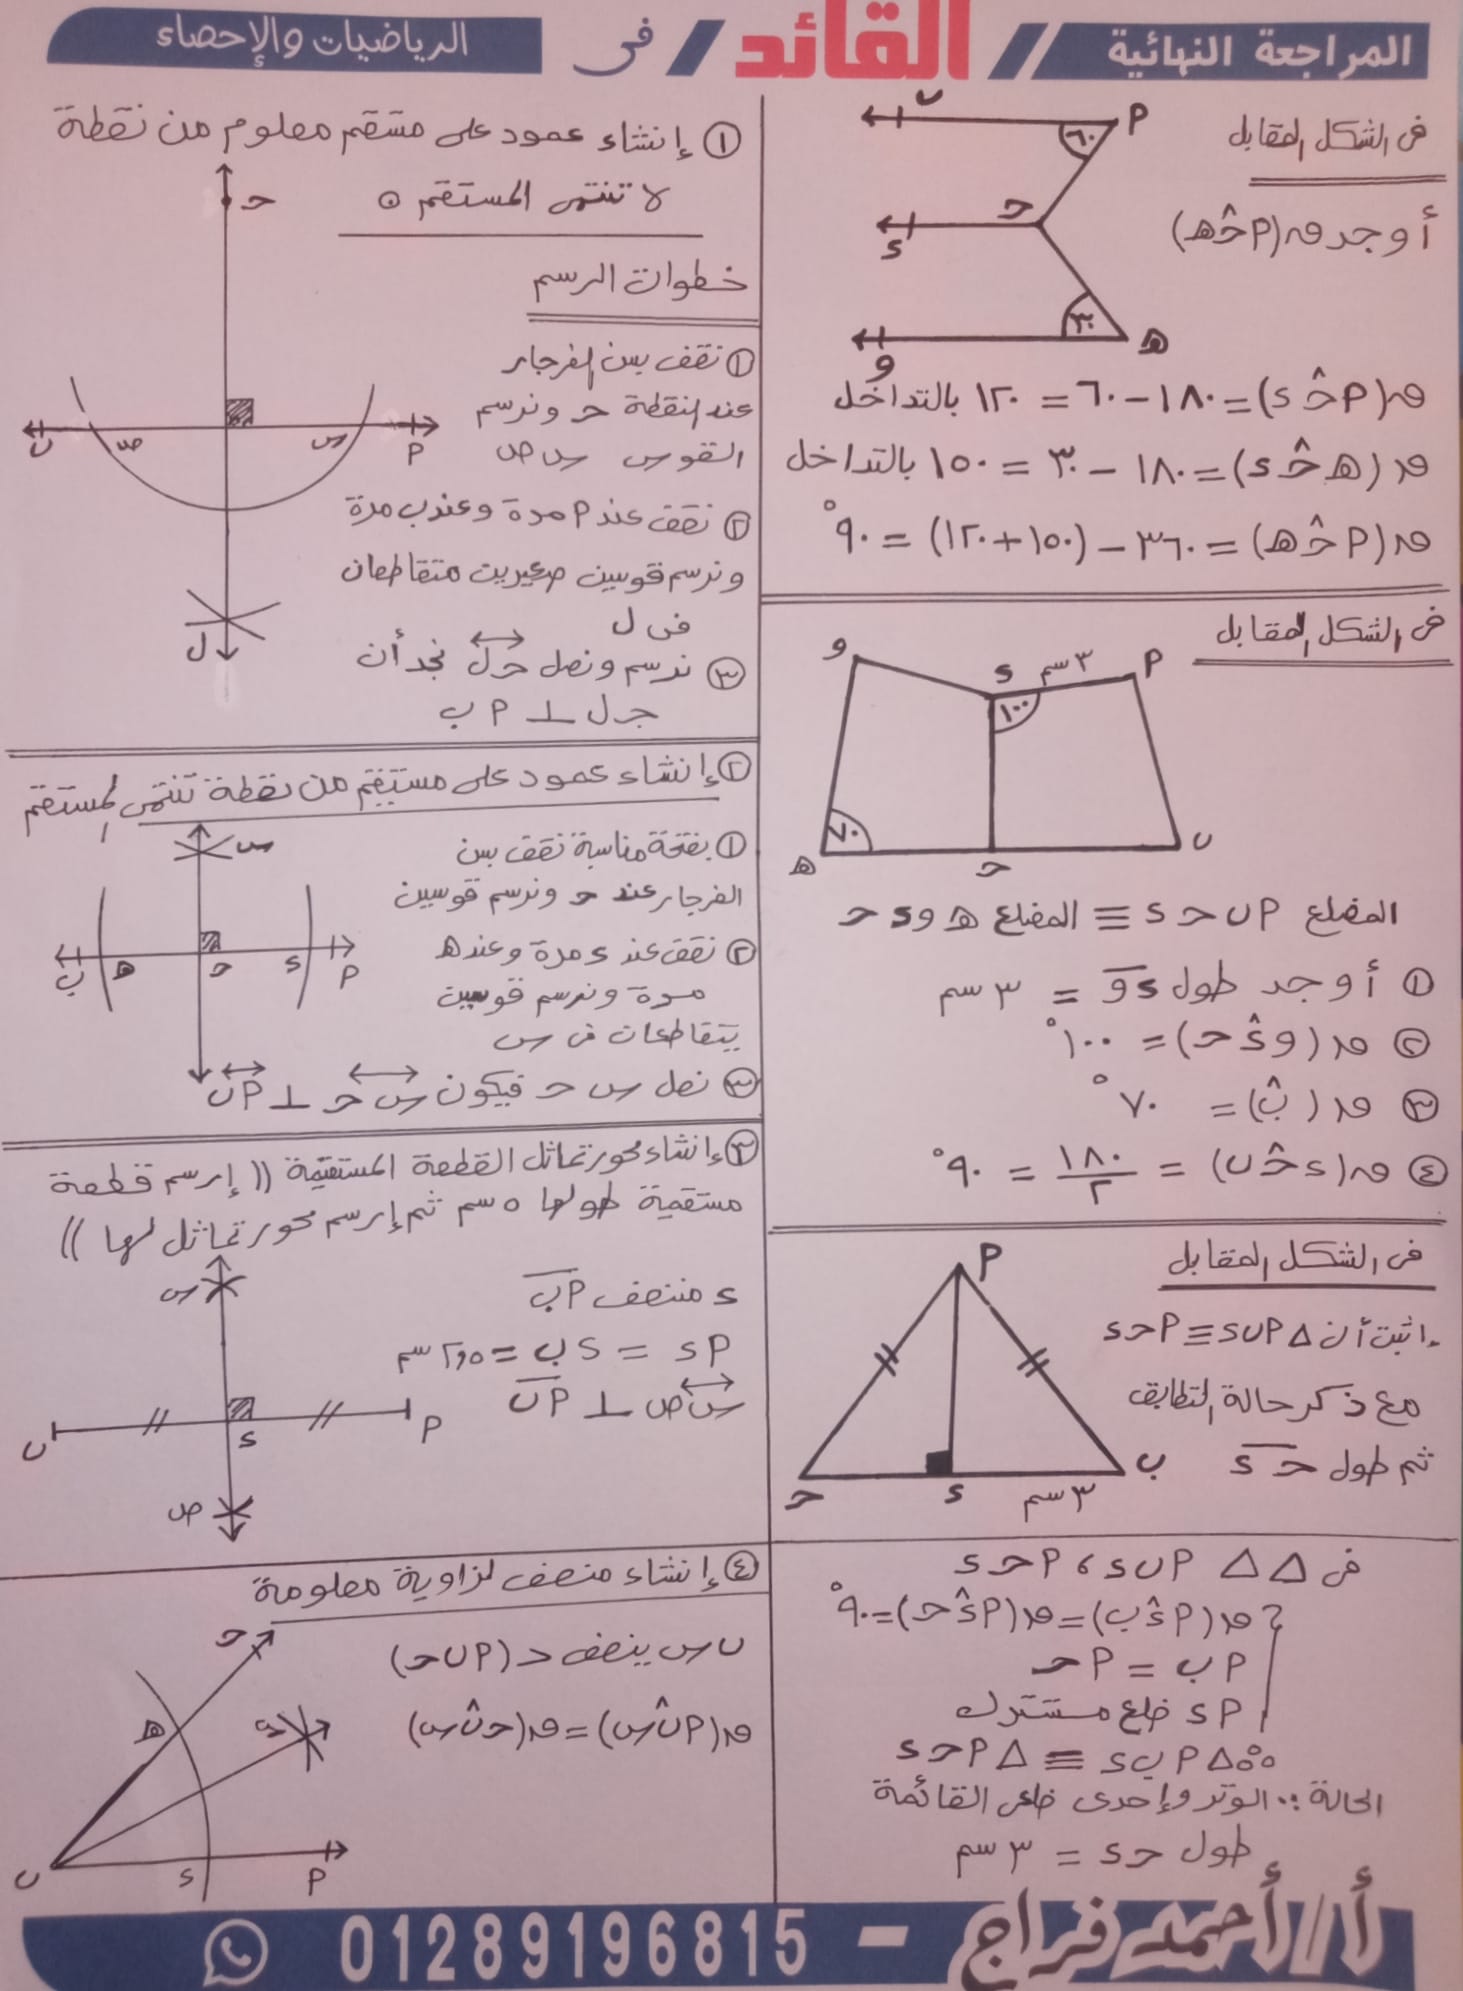 المراجعة النهائية // القائد / فى الرياضيات والإحصاء
فى الشكل المقابل
أوجد ق(أ ح̂ ه)
أ
ب
٦٠
ح
د
٣٠
ه
و
ق(أ ح̂ د) = ١٨٠ - ٦٠ = ١٢٠ بالتداخل
ق(ه ح̂ د) = ١٨٠ - ٣٠ = ١٥٠ بالتداخل
ق(أ ح̂ ه) = ٣٦٠ - (١٥٠ + ١٢٠) = ٩٠°
فى الشكل المقابل
و
د
٣ سم
أ
١٠٠
٧٠
ه
ح
ب
المضلع أ ب ح د ≡ المضلع ه و د ح
① أوجد طول د و = ٣ سم
② ق(و د̂ ح) = ١٠٠°
③ ق(ب̂) = ٧٠°
④ ق(د ح̂ ب) = ١٨٠/٢ = ٩٠°
فى الشكل المقابل
إثبت أن △ أ ب د ≡ أ ح د
مع ذكر حالة التطابق
ثم طول ح د
أ
ب
٣ سم
د
ح
فى △△ أ ب د ، أ ح د
ق(أ د̂ ب) = ق(أ د̂ ح) = ٩٠°
أ ب = أ ح
أ د ضلع مشترك
∴ △ أ ب د ≡ △ أ ح د
الحالة : الوتر وإحدى ضلعى القائمة
طول ح د = ٣ سم
① إنشاء عمود على مستقيم معلوم من نقطة
لا تنتمى للمستقيم
خطوات الرسم
ح
ب
ص
س
أ
ل
① نقف بسن الفرجار
عند النقطة ح ونرسم
القوس س ص
② نقف عند أ مرة وعند ب مرة
ونرسم قوسين صغيرين متقاطعان
فى ل
③ نرسم ونصل ح ل نجد أن
جـ ل ⊥ أ ب
② إنشاء عمود على مستقيم من نقطة تنتمى للمستقيم
س
ب
ه
ح
د
أ
① بفتحة مناسبة نقف بسن
الفرجار عند ح ونرسم قوسين
② نقف عند د مرة وعند ه
مرة ونرسم قوسين
يتقاطعان فى س
③ نصل س ح فيكون س ح ⊥ أ ب
③ إنشاء محور تماثل القطعة المستقيمة (( إرسم قطعة
مستقيمة طولها ٥ سم ثم إرسم محور تماثل لها ))
س
ب
د
أ
ص
د منتصف أ ب
أ د = د ب = ٢,٥ سم
س ص ⊥ أ ب
④ إنشاء منصف لزاوية معلومة
ح
ه
س
ب
د
أ
ب س ينصف > (أ ب ح)
ق(أ ب̂ س) = ق(ح ب̂ س)
أ/أحمد فراج - 01289196815